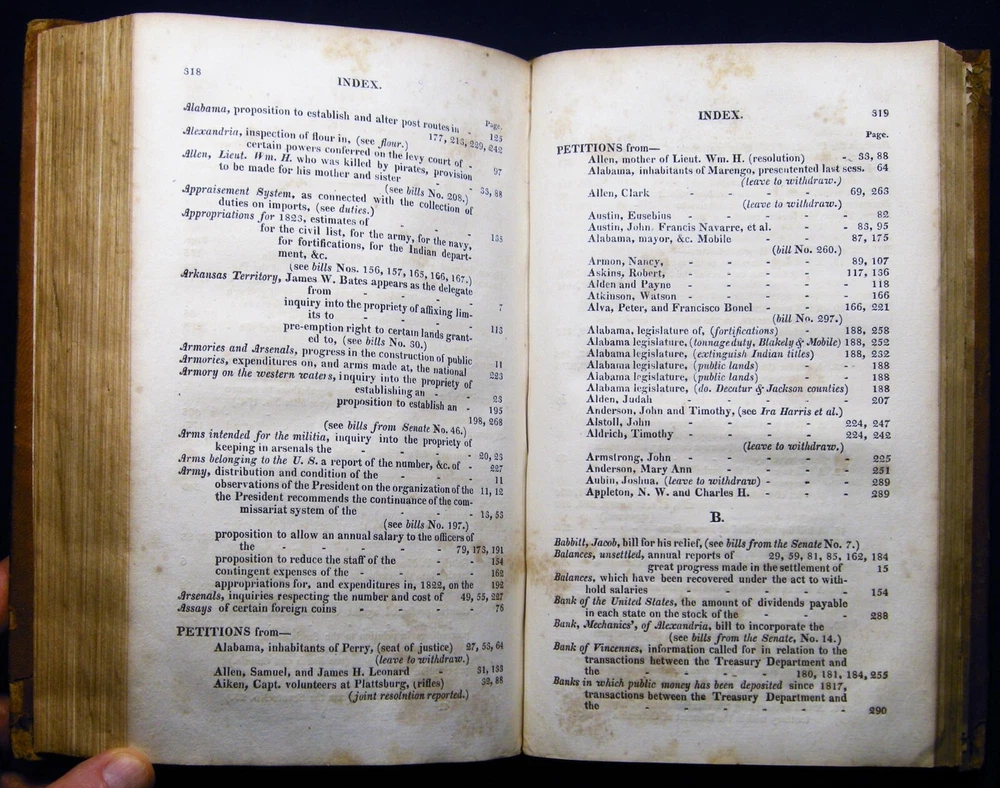 318
INDEX.
Page.
Alabama, proposition to establish and alter post routes in - 125
177, 213, 239, 242
Alexandria, inspection of flour in, (see flour.)
certain powers conferred on the levy court of - 97
Allen, Lieut. Wm. H. who was killed by pirates, provision
to be made for his mother and sister - - 33, 88
(see bills No. 208.)
Appraisement System, as connected with the collection of
duties on imports, (see duties.)
Appropriations for 1823, estimates of - - -
for the civil list, for the army, for the navy,
for fortifications, for the Indian depart-
ment, &c.
(see bills Nos. 156, 157, 165, 166, 167.)
Arkansas Territory, James W. Bates appears as the delegate
from - - - - 7
inquiry into the propriety of affixing lim-
its to - - - - 113
pre-emption right to certain lands grant-
ed to, (see bills No. 30.)
Armories and Arsenals, progress in the construction of public 11
Armories, expenditures on, and arms made at, the national 223
Armory on the western waters, inquiry into the propriety of
establishing an - - 23
proposition to establish an - 195
198, 268
(see bills from Senate No. 46.)
Arms intended for the militia, inquiry into the propriety of
keeping in arsenals the - - - - 20, 23
Arms belonging to the U. S. a report of the number, &c. of - 227
Army, distribution and condition of the - - - 11
observations of the President on the organization of the 11, 12
the President recommends the continuance of the com-
missariat system of the - - - 13, 53
(see bills No. 197.)
proposition to allow an annual salary to the officers of
the - - - - - - 79, 173, 191
proposition to reduce the staff of the - - 154
contingent expenses of the - - - - 162
appropriations for, and expenditures in, 1822, on the 192
Arsenals, inquiries respecting the number and cost of 49, 55, 227
Assays of certain foreign coins - - - - 76
PETITIONS from—
Alabama, inhabitants of Perry, (seat of justice) 27, 53, 64
(leave to withdraw.)
Allen, Samuel, and James H. Leonard - 31, 133
Aiken, Capt. volunteers at Plattsburg, (rifles) 32, 88
(joint resolution reported.)
INDEX. 319
Page.
PETITIONS from—
Allen, mother of Lieut. Wm. H. (resolution) - - 33, 88
Alabama, inhabitants of Marengo, presentented last sess. 64
(leave to withdraw.)
Allen, Clark - - - - 69, 263
(leave to withdraw.)
Austin, Eusebius - - - - - 82
Austin, John, Francis Navarre, et al. - - 83, 95
Alabama, mayor, &c. Mobile - - 87, 175
(bill No. 260.)
Armon, Nancy, - - - - 89, 107
Askins, Robert, - - - - 117, 136
Alden and Payne - - - - - 118
Atkinson, Watson - - - - - 166
Alva, Peter, and Francisco Bonel - - 166, 221
(bill No. 297.)
Alabama, legislature of, (fortifications) - 188, 258
Alabama legislature, (tonnage duty, Blakely & Mobile) 188, 252
Alabama legislature, (extinguish Indian titles) 188, 232
Alabama legislature, (public lands) - - 188
Alabama legislature, (public lands) - - 188
Alabama legislature, (do. Decatur & Jackson counties) 188
Alden, Judah - - - - - 207
Anderson, John and Timothy, (see Ira Harris et al.)
Alstoll, John - - - - 224, 247
Aldrich, Timothy - - - - 224, 242
(leave to withdraw.)
Armstrong, John - - - - - 225
Anderson, Mary Ann - - - - 251
Aubin, Joshua, (leave to withdraw) - - - 289
Appleton, N. W. and Charles H. - - - 289
B.
Babbitt, Jacob, bill for his relief, (see bills from the Senate No. 7.)
Balances, unsettled, annual reports of 29, 59, 81, 85, 162, 184
great progress made in the settlement of 15
Balances, which have been recovered under the act to with-
hold salaries - - - - - 154
Bank of the United States, the amount of dividends payable
in each state on the stock of the - - - 288
Bank, Mechanics', of Alexandria, bill to incorporate the
(see bills from the Senate, No. 14.)
Bank of Vincennes, information called for in relation to the
transactions between the Treasury Department and
the - - - - - 180, 181, 184, 255
Banks in which public money has been deposited since 1817,
transactions between the Treasury Department and
the - - - - - - - 290